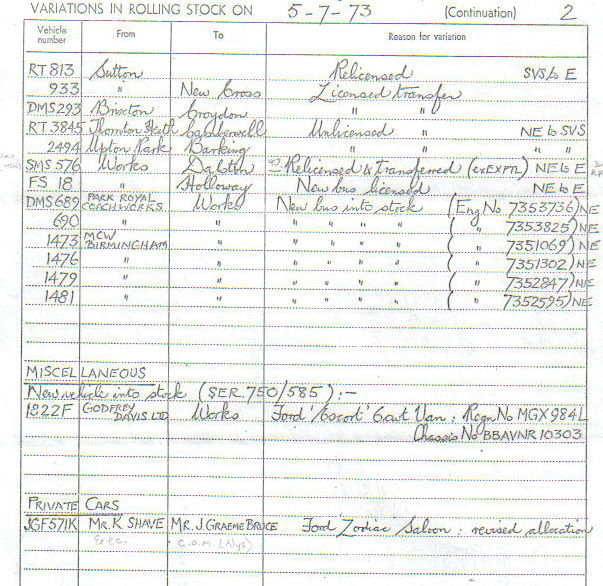 VARIATIONS IN ROLLING STOCK ON 5-7-73 (Continuation) 2
Vehicle number From To Reason for variation
RT 813 Sutton Relicensed SVS to E
933 " New Cross Licensed transfer
DMS 293 Brixton Croydon " " "
RT 3845 Thornton Heath Camberwell Unlicensed " NE to SVS
2494 Upton Park Barking " " " "
SMS 576 Works Dalston Relicensed & transferred (ex EXPTL) NE to E
FS 18 " Holloway New bus licensed NE to E
DMS 689 PARK ROYAL COACHWORKS Works New bus into stock (Eng No 7353736) NE
690 " " " " " " ( " 7353825) NE
1473 MCW BIRMINGHAM " " " " " ( " 7351069) NE
1476 " " " " " " ( " 7351302) NE
1479 " " " " " " ( " 7352847) NE
1481 " " " " " " ( " 7352595) NE
MISCELLANEOUS
New vehicle into stock (SER 750/585) :-
1822F GODFREY DAVIS LTD Works Ford 'Escort' 6cwt Van : Regn No MGX 984L
Chassis No BBAVNR 10303
PRIVATE CARS
JGF571K MR. K SHAVE MR. J. GRAEME BRUCE Ford Zodiac Saloon : revised allocation
Exec. C.O.M. (Rlys)